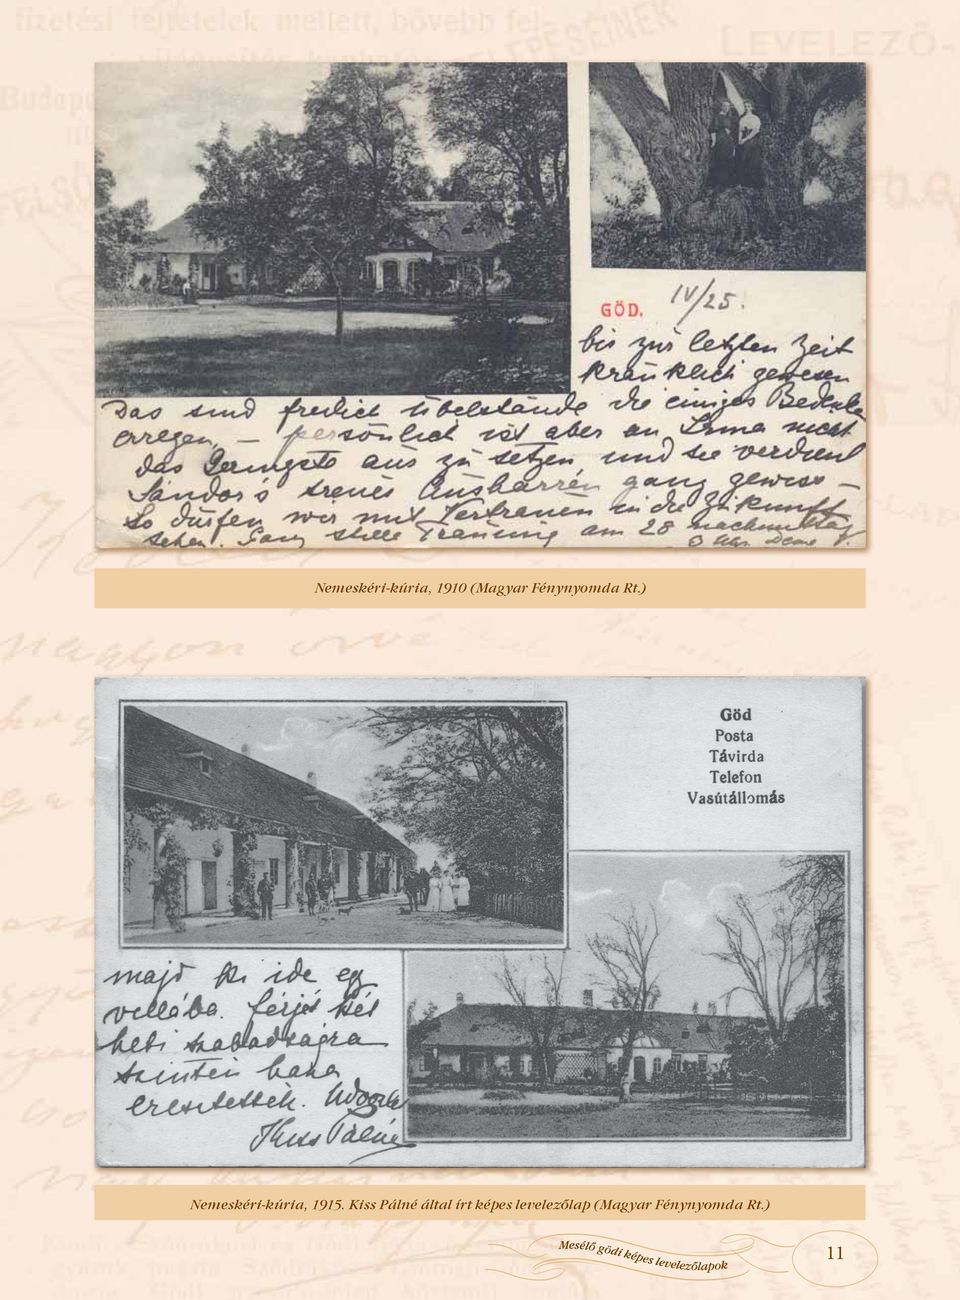 GÖD.
IV/25.
bis zur letzten Zeit
kränklich gewesen
Das sind freilich Übelstände die einiges Bedenken
erregen, — persönlich ist aber an Irma nicht
das Geringste aus zu setzen und sie verdient
Sándor's treues Ausharren ganz gewiss —
So dürfen wir mit Vertrauen in die Zukunft
sehen. Ganz stille Trauung am 28 nachmittag
3 Uhr.
Nemeskéri-kúria, 1910 (Magyar Fénynyomda Rt.)
Göd
Posta
Távirda
Telefon
Vasútállomás
majd ki ide egy
vellába. férjét két
heti szabadságra
szintén haza
eresztették.
Kiss Pálné
Nemeskéri-kúria, 1915. Kiss Pálné által írt képes levelezőlap (Magyar Fénynyomda Rt.)
Mesélő gödi képes levelezőlapok
11